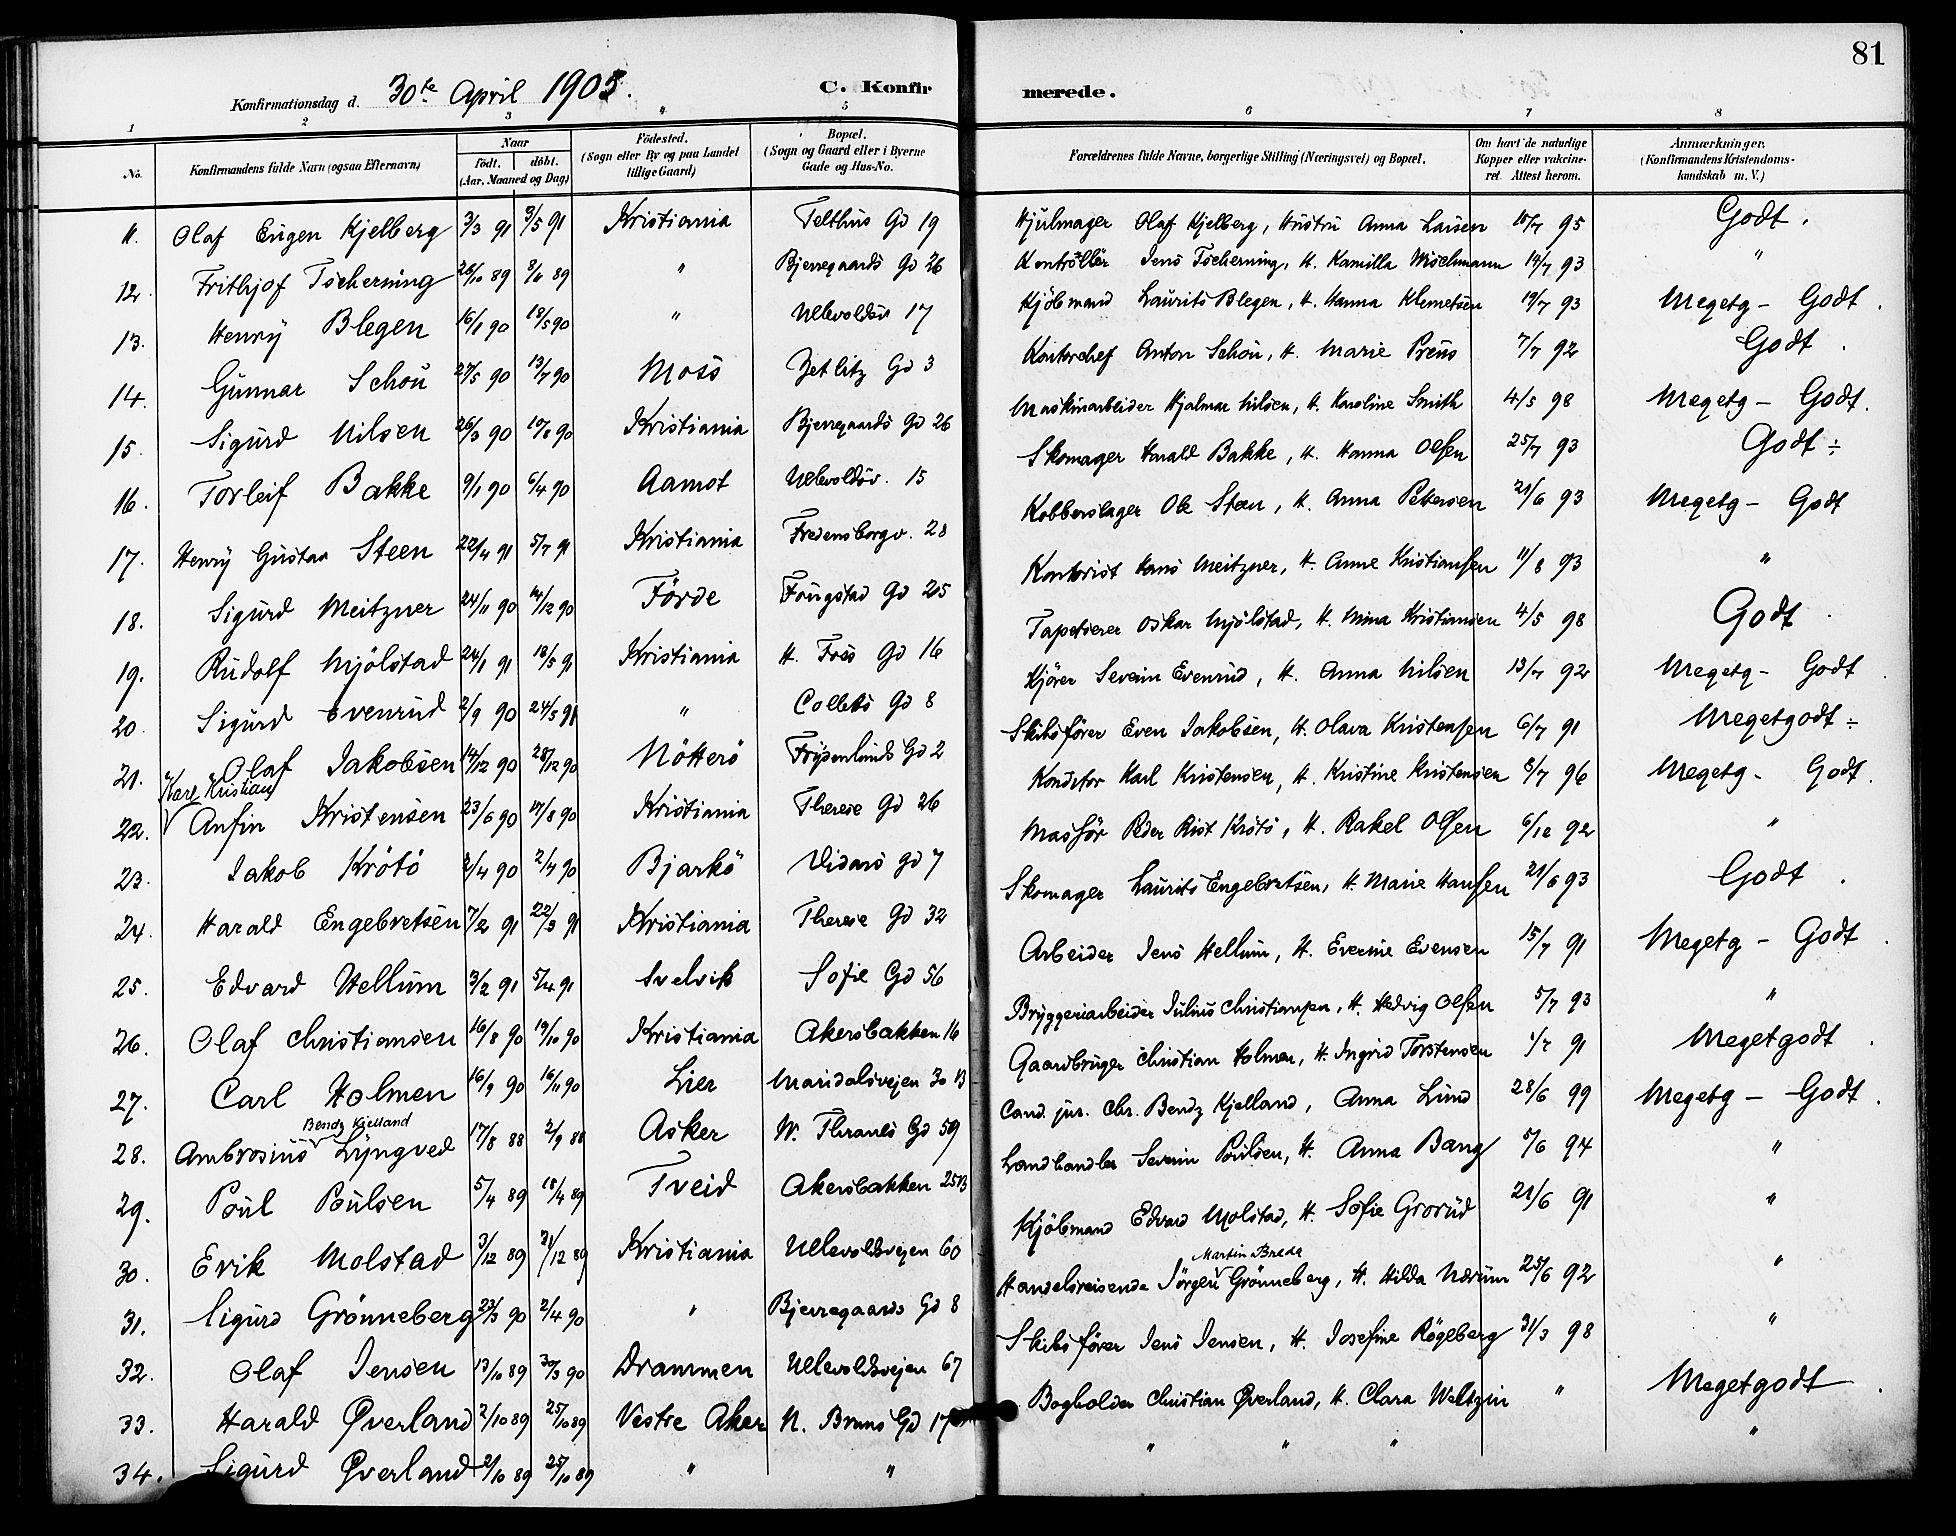 81
Konfirmationsdag d. 30te April 1905. C. Konfirmerede.
1 2 3 4 5 6 7 8
No. Konfirmandens fulde Navn (ogsaa Efternavn) Naar født. døbt. (Aar, Maaned og Dag) Fødested. (Sogn eller By og paa Landet tillige Gaard) Bopæl. (Sogn og Gaard eller i Byerne Gade og Hus-No. Forældrenes fulde Navne, borgerlige Stilling (Næringsvei) og Bopæl. Om havt de naturlige Kopper eller vakcineret. Attest herom. Anmærkninger. (Konfirmandens Kristendomskundskab m. V.)
11. Olaf Eugen Kjelberg 3/3 91 3/5 91 Kristiania Telthus Gd 19 Hjulmager Olaf Kjelberg, Hustru Anna Larsen 15/7 95 Godt.
12. Frithjof Tscherning 26/10 89 8/11 89 " Bjerregaards Gd 26 Kontrollør Jens Tscherning, H. Kamilla Wischmann 14/7 93 "
13. Henry Blegen 16/1 90 18/5 90 " Ullevoldsv 17 Kjöbmand Laurits Blegen, H. Hanna Klemetsen 19/7 93 Megetg - Godt.
14. Gunnar Schou 27/5 90 13/7 90 Moss Zetlitz Gd 3 Kontorchef Anton Schou, H. Marie Preus 7/7 92 Godt.
15. Sigurd Nilsen 26/3 90 17/8 90 Kristiania Bjerregaards Gd 26 Maskinarbeider Hjalmar Nilsen, H. Karoline Smith 4/5 98 Megetg - Godt.
16. Torleif Bakke 9/1 90 6/4 90 Aamot Ullevoldsv. 15 Skomager Harald Bakke, H. Hanna Olsen 25/7 93 Godt ÷
17. Henry Gustav Steen 22/4 91 5/7 91 Kristiania Fredensborgv. 28 Kobberslager Ole Steen, H. Anna Pettersen 21/6 93 Megetg - Godt
18. Sigurd Meitzner 24/11 90 14/12 90 Förde Fougstad Gd 25 Kontorist Hans Meitzner, H. Anne Kristiansen 11/8 93 "
19. Rudolf Mjölstad 24/1 91 18/5 91 Kristiania H. Foss Gd 16 Tapetserer Oskar Mjölstad, H. Mina Kristiansen 4/5 98 Godt.
20. Sigurd Evenrud 2/9 90 24/5 91 " Colletts Gd 8 Kjörer Severin Evenrud, H. Anna Nilsen 13/7 92 Megetg - Godt
21. Olaf Jakobsen 14/12 90 28/12 90 Nötterö Frydenlunds Gd 2 Skibsförer Even Jakobsen, H. Olava Kristensen 6/7 91 Megetgodt ÷
22. Karl Kristian Anfin Kristensen 23/6 90 17/8 90 Kristiania Therese Gd 26 Konditor Karl Kristensen, H. Kristine Kristensen 8/7 96 Megetg - Godt.
23. Jakob Krötö 2/4 90 2/7 90 Bjarkö Vidars gd 7 Peder Rist Krötö, H. Rakel Olsen 6/12 92 "
24. Harald Engebretsen 7/2 91 22/3 91 Kristiania Therese Gd 32 Skomager Laurits Engebretsen, H. Marie Hansen 21/6 93 Godt.
25. Edvard Hellum 3/2 91 5/4 91 Svelvik Sofie Gd 56 Arbeider Jens Hellum, H. Everine Evensen 15/7 91 Megetg - Godt.
26. Olaf Christiansen 16/8 90 19/10 90 Kristiania Akersbakken 16 Bryggeriarbeider Julius Christiansen, H. Hedvig Olsen 5/7 93 "
27. Carl Holmen 16/9 90 16/11 90 Lier Maridalsvejen 30 B Gaardbruger Christian Holmen, H. Ingrid Torstensen 1/7 91 Megetgodt.
28. Ambrosius Bendz Kjelland Lyngved 17/8 88 2/9 88 Asker W. Thranes Gd 59 Cand. jur. Chr. Bendz Kjelland, Anna Lund 28/6 99 Megetg - Godt.
29. Poul Poulsen 5/4 89 18/4 89 Tveid Akersbakken 25 B Landhandler Severin Poulsen, H. Anna Bang 5/6 94 "
30. Erik Molstad 3/12 89 31/12 89 Kristiania Ullevoldsvejen 60 Kjöbmand Edvard Molstad, H. Sofie Grorud 21/6 91 "
31. Sigurd Grönneberg 23/3 90 2/4 90 " Bjerregaards Gd 8 Handelsreisende Jörgen Martin Brede Grönneberg, H. Hilda Nærum 25/6 92 "
32. Olaf Jensen 13/10 89 30/3 90 Drammen Ullevoldsvejen 67 Skibsförer Jens Jensen, H. Josefine Rögeberg 31/3 98 "
33. Harald Øverland 2/10 89 25/10 89 Vestre Aker N. Bruns Gd 17 Bogholder Christian Øverland, H. Clara Weltzin " Megetgodt.
34. Sigurd Øverland 2/10 89 25/10 89 " " " " " "